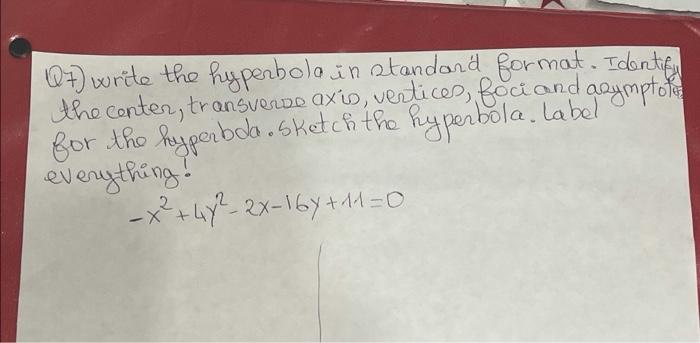 Q7) write the hyperbola in standard format. Identify
the center, transverse axis, vertices, foci and asymptotes
for the hyperbola. Sketch the hyperbola. Label
everything!
-x² + 4y² - 2x - 16y + 11 = 0